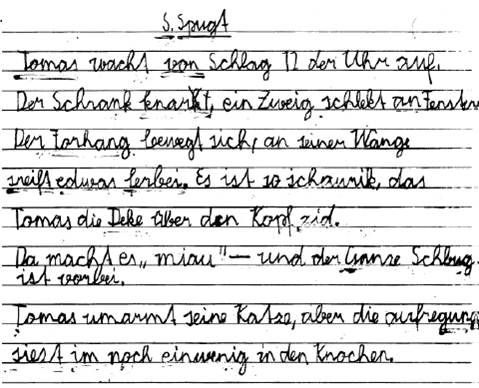 S. Spugt
Tomas wacht von Schlag 12 der Uhr auf.
Der Schrank knarkt, ein Zweig schlekt an Fenster
Der Forhang bewegt sich, an seiner Wange
sreift edwas ferbei. Es ist so schaurik, das
Tomas die Deke über den Kopf zid.
Da macht es „miau" – und der Ganze Schbug
ist vorbei.
Tomas umarmt seine Katze, aber die aufregung
siest im noch einwenig in den Knochen.